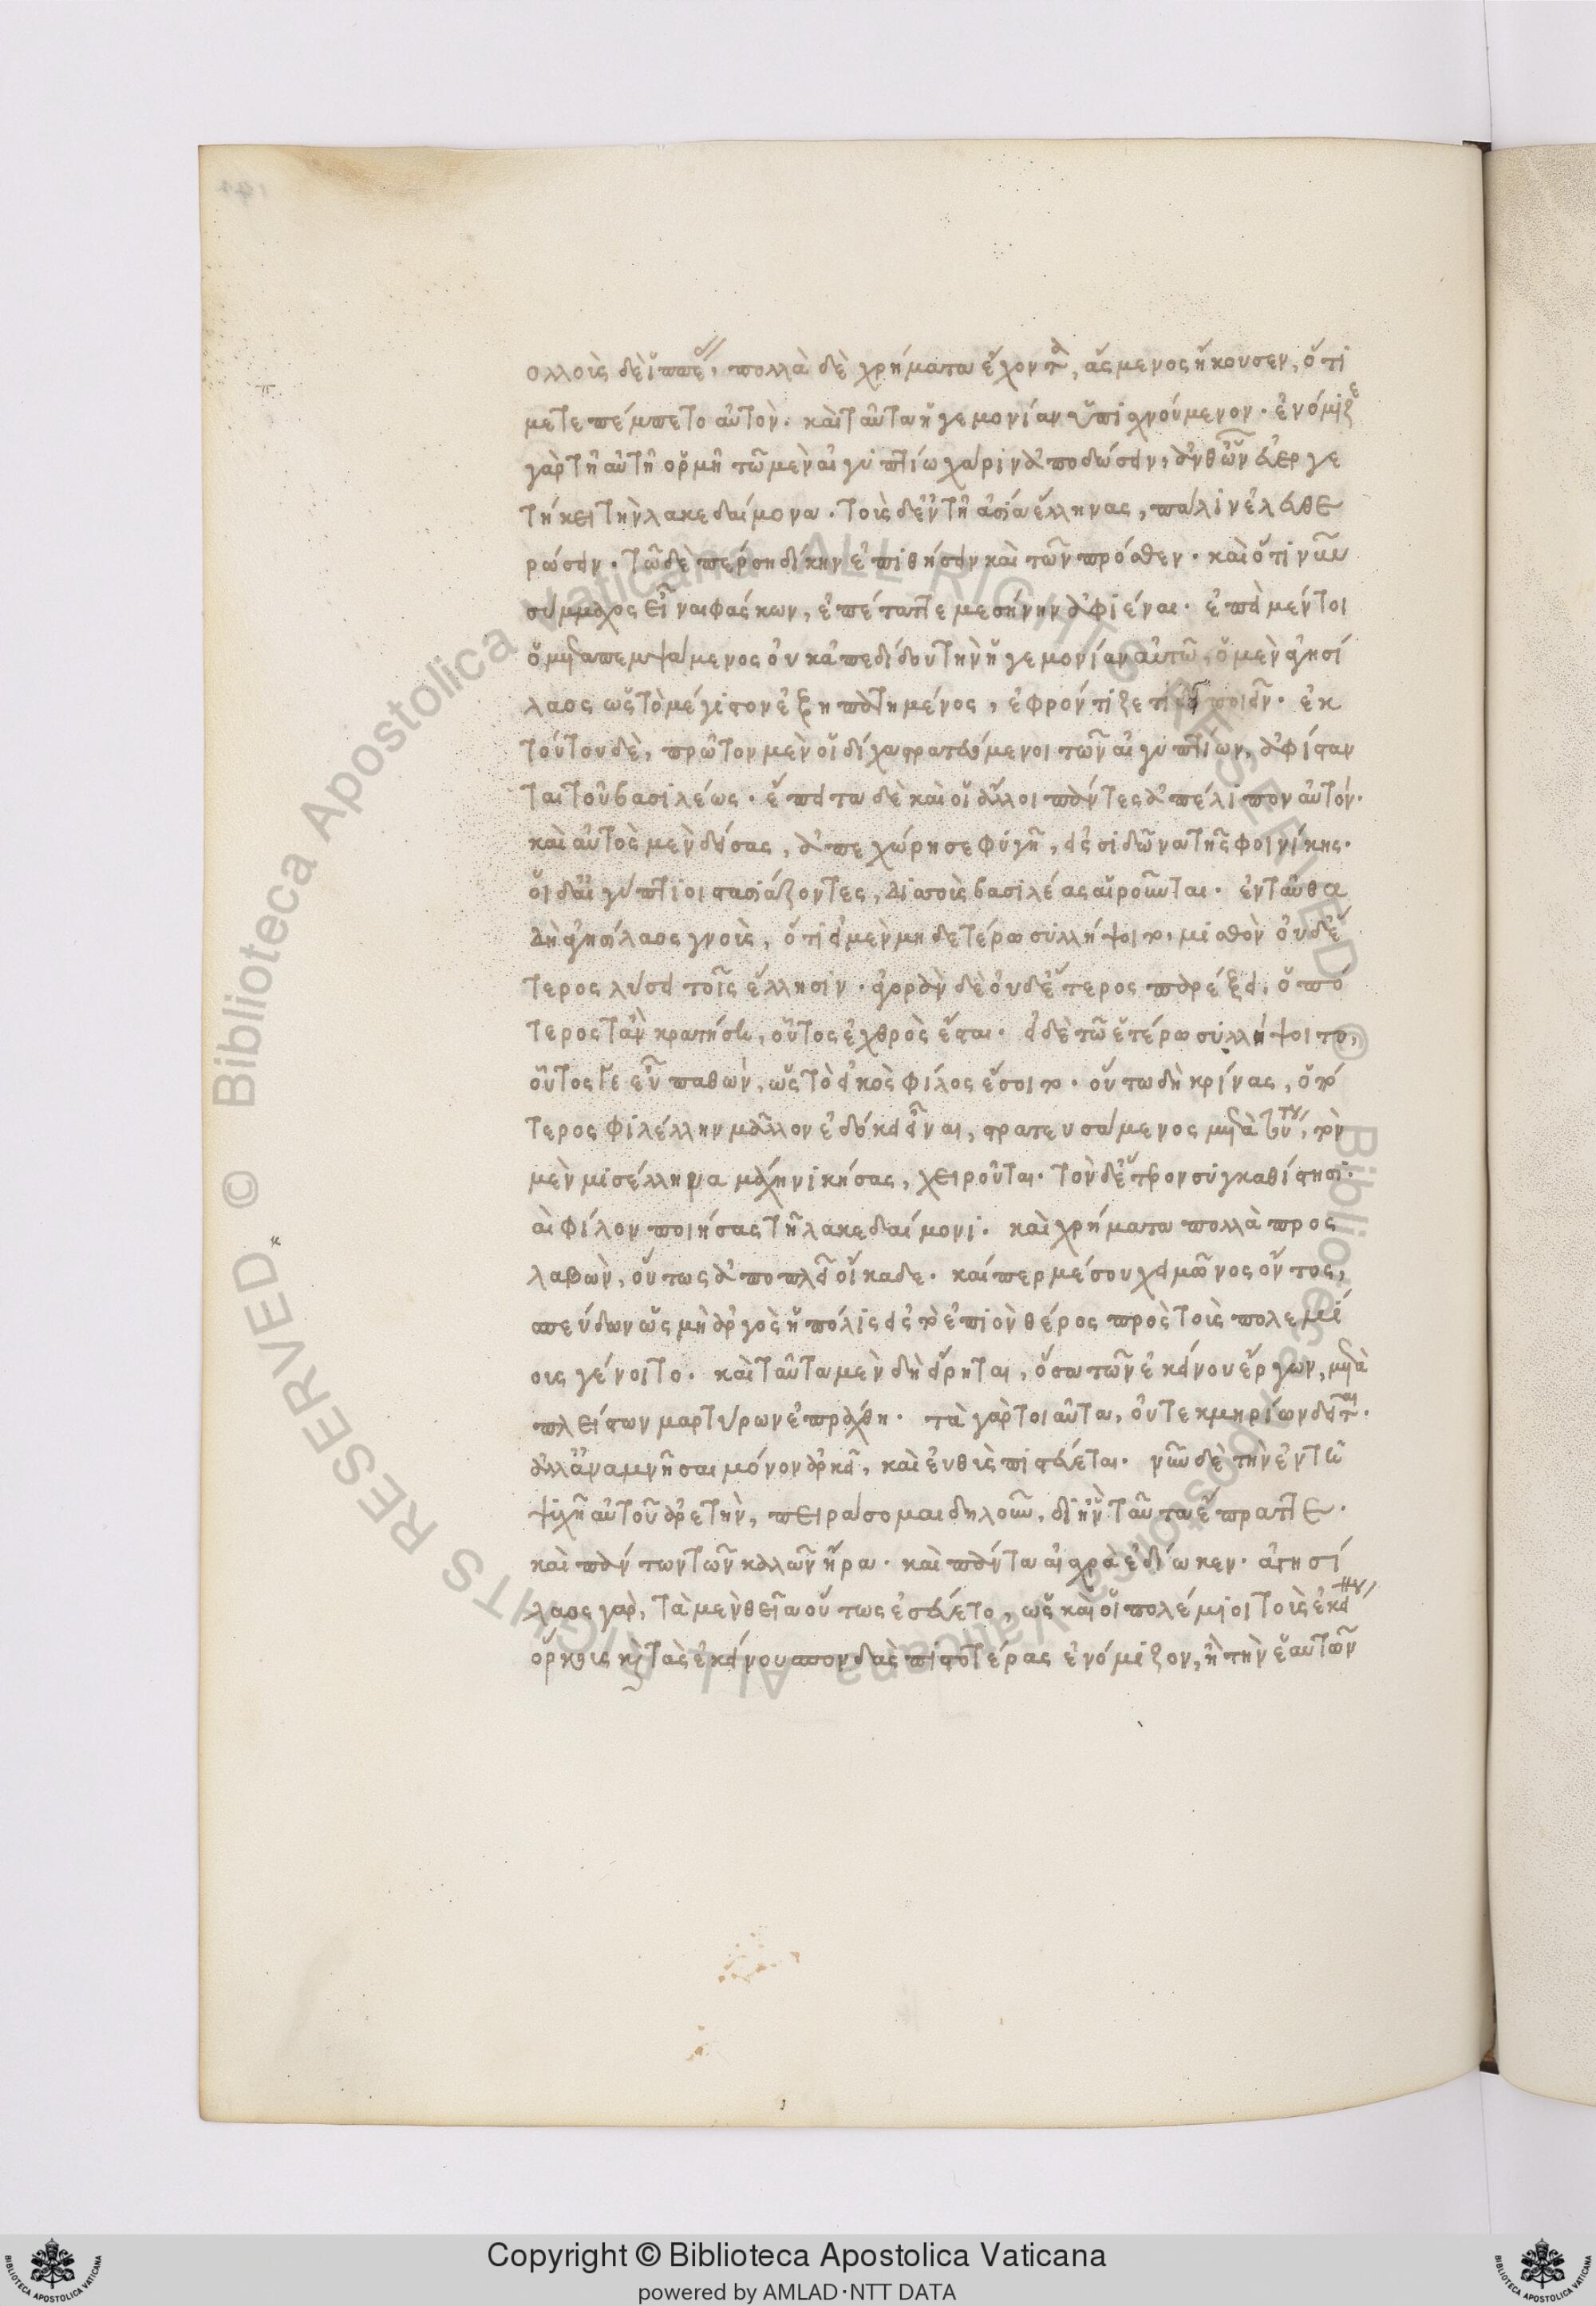 ολλοὺς δὲ ἵππους, πολλὰ δὲ χρήματα ἔχοντα, ἄσμενος ἤκουσεν, ὅτι
μετεπέμπετο αὐτὸν. καὶ ταῦτα ἡγεμονίαν ὑπισχνούμενον. ἐνόμιζε
γὰρ τῇ αὐτῇ ὁρμῇ τῶ μὲν αἰγυπτίω χάριν ἀποδώσειν, ἀνθ ὧν εὐεργε
τήκει τὴν λακεδαίμονα. τοὺς δ ἐν τῇ ἀσία ἕλληνας, πάλιν ἐλευθε
ρώσειν. τῶ δὲ πέρση δίκην ἐπιθήσειν καὶ τῶν πρόσθεν. καὶ ὅτι νῦν
σύμμαχος εἶναι φάσκων, ἐπέταττε μεσήνην ἀφιέναι. ἐπεὶ μέντοι
ὁ μεταπεμψάμενος οὐκ ἀπεδίδου τὴν ἡγεμονίαν αὐτῶ, ὁ μὲν ἀγησί
λαος ὡς τὸ μέγιστον ἐξηπατημένος, ἐφρόντιζε τί δεῖ ποιεῖν. ἐκ
τούτου δὲ, πρῶτον μὲν οἱ δίχα στρατευόμενοι τῶν αἰγυπτίων, ἀφίσταν
ται τοῦ βασιλέως. ἔπειτα δὲ καὶ οἱ ἄλλοι πάντες ἀπέλιπον αὐτόν.
καὶ αὐτὸς μὲν δείσας, ἀπεχώρησε φύγῆ, εἰς σιδῶνα τῆς φοινίκης.
οἱ δ αἰγύπτιοι στασιάζοντες, δισσοὺς βασιλέας αἱροῦνται. ἐνταῦθα
δὴ ἀγησίλαος γνοὺς, ὅτι εἰ μὲν μηδετέρω συλλήψοιτο, μισθὸν οὐδέ
τερος λύσει τοῖς ἕλλησιν. ἀγορὰν δὲ οὐδέτερος παρέξει, ὁπό
τερος τ ἂν κρατήση, οὗτος ἐχθρὸς ἔσται. εἰ δὲ τῶ ἑτέρω συλλήψοιτο,
οὗτος γε εὖ παθὼν, ὡς τὸ εἰκὸς φίλος ἔσοιτο. οὕτω δὴ κρίνας, ὁπό
τερος φιλέλλην μᾶλλον ἐδόκει εἶναι, στρατευσάμενος μετὰ τούτου, τὸν
μὲν μισέλληνα μάχη νικήσας, χειροῦται. τὸν δ ἕτερον συγκαθίστησι.
αὶ φίλον ποιήσας τῆ λακεδαίμονι. καὶ χρήματα πολλὰ προς
λαβὼν, οὕτως ἀποπλεῖ οἴκαδε. καίπερ μέσου χειμῶνος ὄντος,
σπεύδων ὡς μὴ ἀργὸς ἡ πόλις εἰς τὸ ἐπιὸν θέρος πρὸς τοὺς πολεμί
ους γένοιτο. καὶ ταῦτα μὲν δὴ εἴρηται, ὅσα τῶν ἐκείνου ἔργων, μετὰ
πλείστων μαρτύρων ἐπράχθη. τὰ γὰρ τοιαῦτα, οὐ τεκμηρίων δεῖται.
ἀλλ ἀναμνῆσαι μόνον ἀρκεῖ, καὶ εὐθὺς πιστεύεται. νῦν δὲ τὴν ἐν τῆ
ψυχῆ αὐτοῦ ἀρετὴν, πειράσομαι δηλοῦν, δι ἣν ταῦτα ἔπραττε.
καὶ πάντων τῶν καλῶν ἤρα. καὶ πάντα αἰσχρὰ ἐδίωκεν. ἀγησί
λαος γὰρ, τὰ μὲν θεῖα οὕτως ἐσέβετο, ὡς καὶ οἱ πολέμιοι τοὺς ἐκείνου
ὅρκους καὶ τὰς ἐκείνου σπονδὰς πιστοτέρας ἐνόμιζον, ἢ τὴν ἑαυτῶν